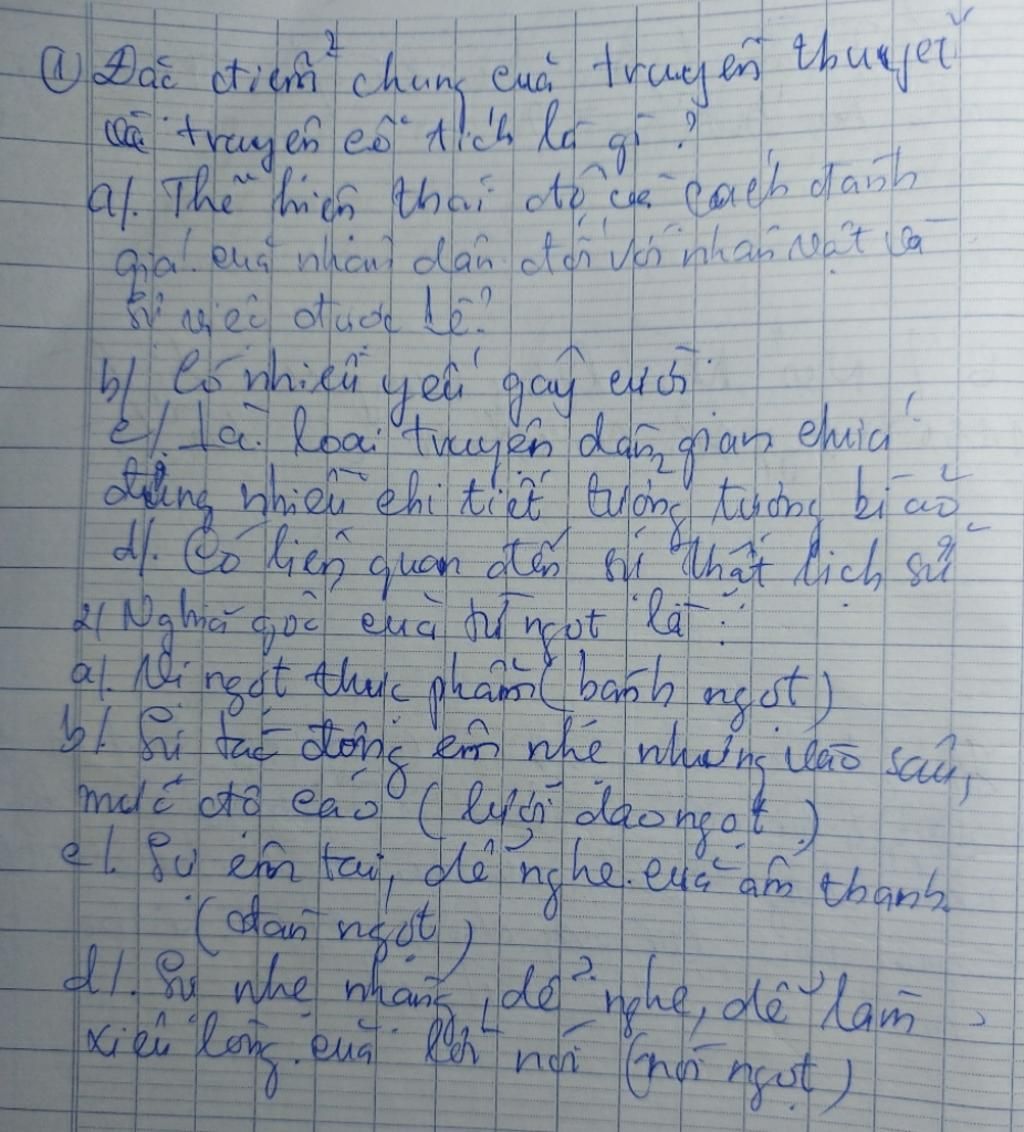 ① Đặc điểm chung của truyền thuyết
và truyện cổ tích là gì?
a/. Thể hiện thái độ và cách đánh
giá của nhân dân đối với nhân vật và
sự việc được kể?
b/ Có nhiều yếu gây cười.
c/. Là loại truyện dân gian chứa
đựng nhiều chi tiết tưởng tượng kì ảo
d/. Có liên quan đến sự thật lịch sử
2/ Nghĩa gốc của từ ngọt là:
a/. Vị ngọt thực phẩm (bánh ngọt)
b/. Sự tác động êm nhẹ nhưng vào sâu,
mức độ cao (lưỡi dao ngọt)
c/. Sự êm tai, dễ nghe của âm thanh
(đàn ngọt)
d/. Sự nhẹ nhàng, dễ nghe, dễ làm
xiêu lòng của lời nói (nói ngọt)